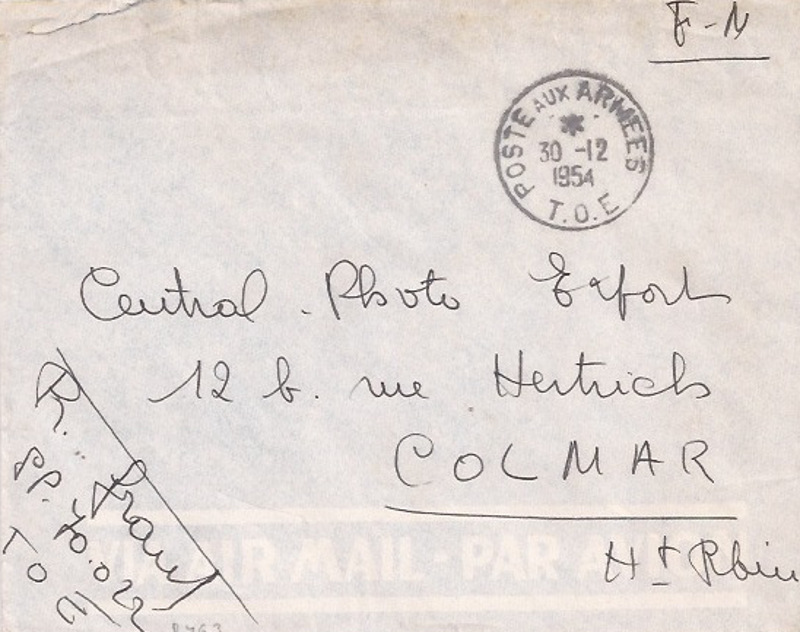 F-N
POSTE AUX ARMEES
30-12
1954
T.O.E
Central. Photo Exfort
12 b. rue Hertrich
COLMAR
Ht Rhin
R.
SP. 70.022
T O E
VIA AIR MAIL - PAR AVION